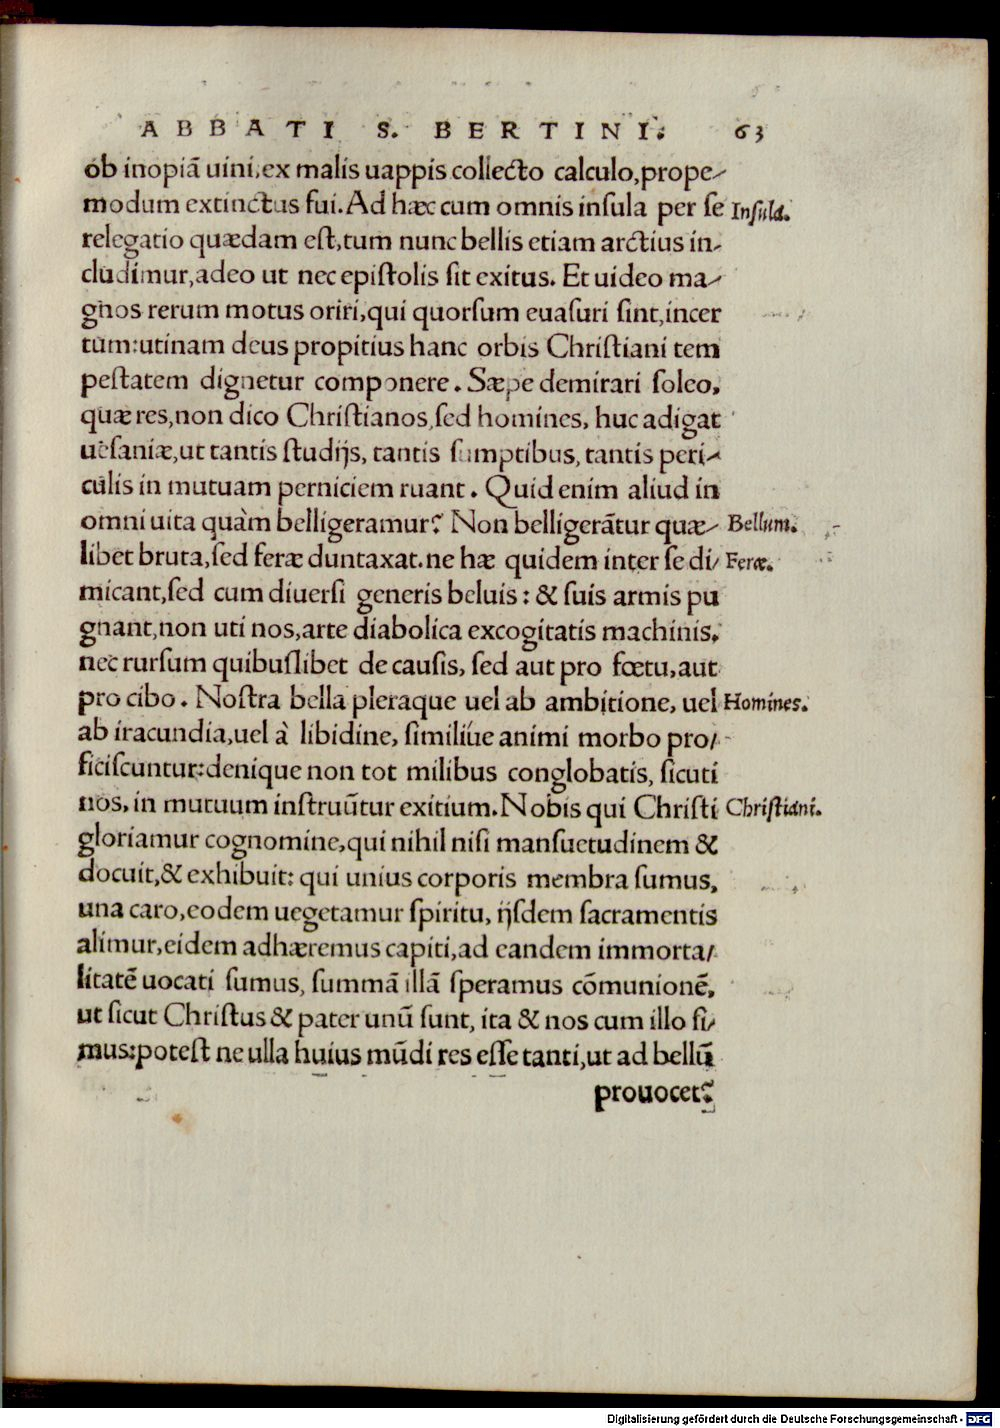 ABBATI S. BERTINI. 63
ob inopiā uini, ex malis uappis collecto calculo, prope-
modum extinctus fui. Ad hæc cum omnis insula per se Insula.
relegatio quædam est, tum nunc bellis etiam arctius in-
cludimur, adeo ut nec epistolis sit exitus. Et uideo ma-
gnos rerum motus oriri, qui quorsum euasuri sint, incer
tum: utinam deus propitius hanc orbis Christiani tem
pestatem dignetur componere. Sæpe demirari soleo,
quæ res, non dico Christianos, sed homines, huc adigat
uesaniæ, ut tantis studijs, tantis sumptibus, tantis peri-
culis in mutuam perniciem ruant. Quid enim aliud in
omni uita quàm belligeramur? Non belligerātur quæ- Bellum.
libet bruta, sed feræ duntaxat. ne hæ quidem inter se di- Feræ.
micant, sed cum diuersi generis beluis: & suis armis pu
gnant, non uti nos, arte diabolica excogitatis machinis,
nec rursum quibuslibet de causis, sed aut pro fœtu, aut
pro cibo. Nostra bella pleraque uel ab ambitione, uel Homines.
ab iracundia, uel à libidine, similiúe animi morbo pro-
ficiscuntur: denique non tot milibus conglobatis, sicuti
nos, in mutuum instruūtur exitium. Nobis qui Christi Christiani.
gloriamur cognomine, qui nihil nisi mansuetudinem &
docuit, & exhibuit: qui unius corporis membra sumus,
una caro, eodem uegetamur spiritu, ijsdem sacramentis
alimur, eidem adhæremus capiti, ad eandem immorta-
litatē uocati sumus, summā illā speramus cōmunionē,
ut sicut Christus & pater unū sunt, ita & nos cum illo si-
mus: potest ne ulla huius mūdi res esse tanti, ut ad bellū
prouocet?
Digitalisierung gefördert durch die Deutsche Forschungsgemeinschaft - DFG